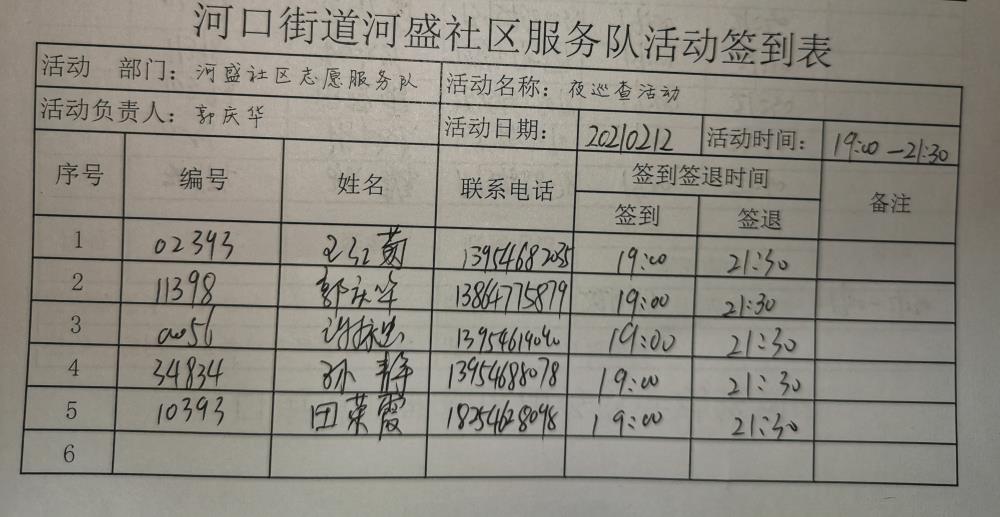 河口街道河盛社区服务队活动签到表
活动 部门：河盛社区志愿服务队 活动名称：夜巡查活动
活动负责人：郭庆华 活动日期：20210212 活动时间：19:00—21:30
序号 编号 姓名 联系电话 签到签退时间 备注
签到 签退
1 02393 王红菊 13954682035 19:00 21:30
2 11398 郭庆华 13864775879 19:00 21:30
3 0056 13954619090 19:00 21:30
4 34834 孙静 13954688078 19:00 21:30
5 10393 田荣霞 18254628098 19:00 21:30
6